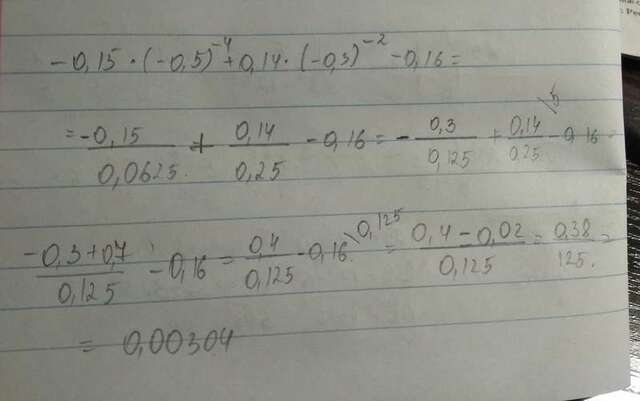 -0,15 · (-0,5)^-4 + 0,14 · (-0,5)^-2 - 0,16 =
= -0,15/0,0625 + 0,14/0,25 - 0,16 = - 0,3/0,125 + 0,14/0,25 \5 - 0,16 =
-0,3+0,7/0,125 - 0,16 = 0,4/0,125 - 0,16 \0,125 = 0,4-0,02/0,125 = 0,38/125. =
= 0,00304